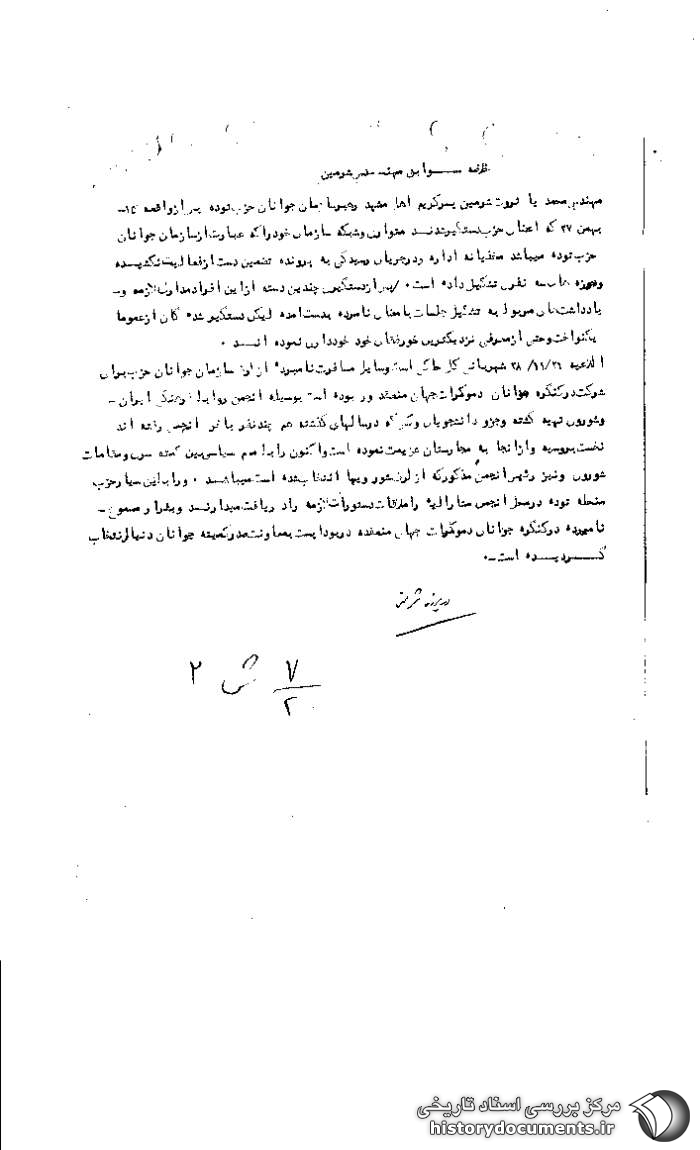 سوابق مهندس شرمین
مهندس محمد یا ثروت شرمین پسر کریم اهل مشهد رهبر سازمان جوانان حزب توده پس از واقعه ۱۵-
بهمن ۲۷ که اعضای حزب دستگیر شدند متواری و شبکه سازمانی خود را که عبارت از سازمان جوانان
حزب توده میباشد مخفیانه اداره و در جریان رسیدگی به پرونده تضمین دست از فعالیت نکشیده
و حوزه های سه نفری تشکیل داده است. پس از دستگیری چندین دسته از این افراد مدارک لازمه و-
یادداشتهای مربوط به تشکیل جلسات با امضای نامبرده بدست آمده لیکن دستگیر شده گان از عموما
یکنواخت و حتی از معرفی نزدیکترین خود خودداری نموده اند.
اطلاعیه ۲۶/۱۱/۲۸ شهربانی کل حاکی است وسایل مسافرت نامبرده از طرف سازمان جوانان حزب برای
شرکت در کنگره جوانان دموکرات جهان منعقده بوده است بوسیله انجمن روابط فرهنگی ایران-
و شوروی تهیه گشته و جزو دانشجویان که در سالهای گذشته هم چند نفر با انجمن رفته اند
نخست بروسیه و از آنجا به مجارستان عزیمت نموده است و اکنون رابط سیاسی بین کمیته سری و مقامات
شوروی و نیز رئیس انجمن مذکور که از طرف شورویها انتخاب شده است میباشد. و رابطین سیار حزب
منحله توده در محل انجمن مشارالیه را ملاقات دستورات لازمه را دریافت میدارند و بقرار مسموع-
نامبرده در کنگره جوانان دموکرات جهان منعقده در بوداپست بمعاونت صدر کمیته جوانان دنیا انتخاب
گردیده است-.
۷/۲ ش ۲
مرکز بررسی اسناد تاریخی
historydocuments.ir